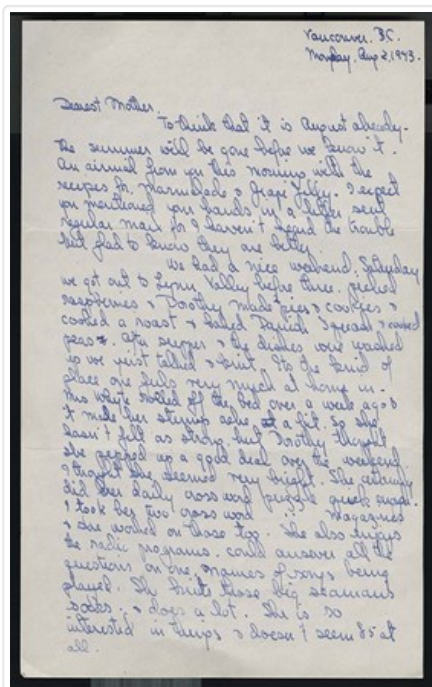 Vancouver. B.C.
Monday. Aug 2, 1943.
Dearest Mother.
To think that it is August already -
the summer will be gone before we know it.
An airmail from you this morning with the
recipes for Marmalade & Grape Jelly. I expect
you mentioned your hands in a letter sent
regular mail for I haven't heard the trouble
but glad to know they are better.
We had a nice weekend. Saturday
we got out to Lynn Valley before three. picked
raspberries & Dorothy made pies & cookies &
cooked a roast & baked Squash Special & canned
peas. After supper & the dishes were washed
we just talked & knit. It's the kind of
place one feels very much at home in -
Mrs White rolled off the bed over a week ago &
it made her stump ache a bit. So she
hasn't felt as strong but Dorothy thought
she pepped up a good deal over the weekend.
I thought she seemed very bright. She certainly
did her daily cross word puzzle quick
I took her two cross word magazines
& she worked on those too. She also enjoys
the radio programs. could answer all the
questions on one, names of songs being
played. She knits those big seamans
socks. & does a lot. She is so
interested in things & doesn't seem 85 at
all.